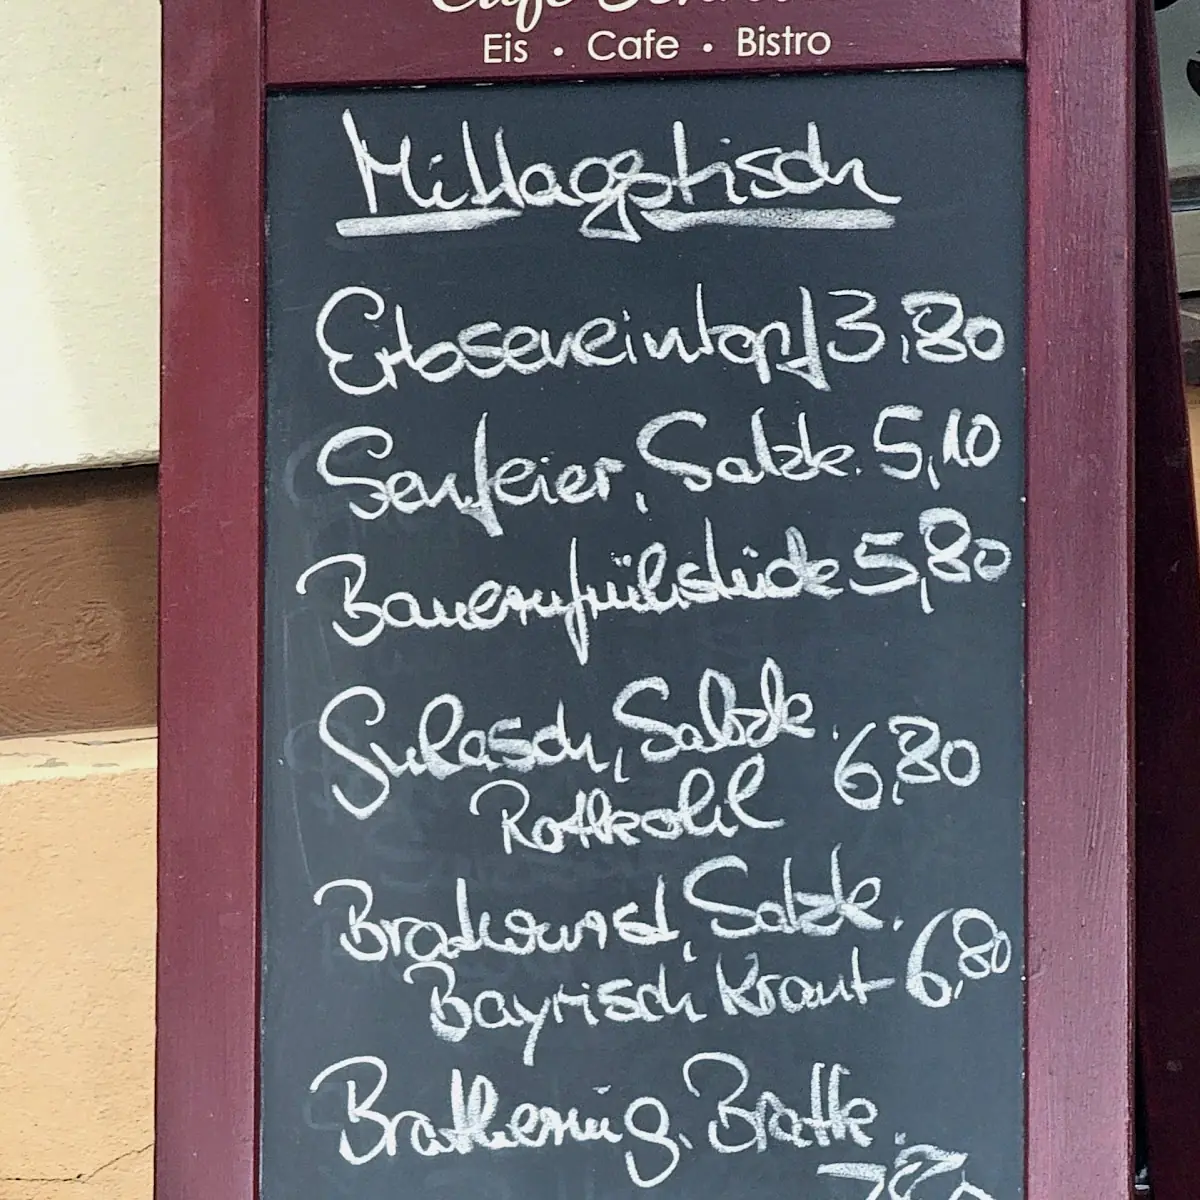 Café
Eis • Cafe • Bistro
Mittagstisch
Erbseneintopf 3,80
Senfeier, Salzk. 5,10
Bauernfrühstück 5,80
Gulasch, Salzk. 6,80
Rotkohl
Bratwurst, Salzk.
Bayrisch Kraut 6,80
Brathering, Bratk.